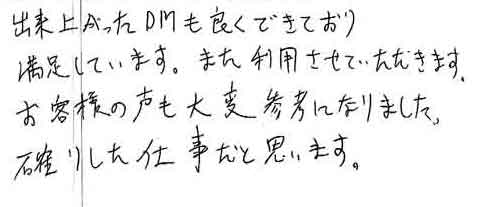 出来上がったDMも良くできており
満足しています。また利用させていただきます。
お客様の声も大変参考になりました。
確りした仕事だと思います。